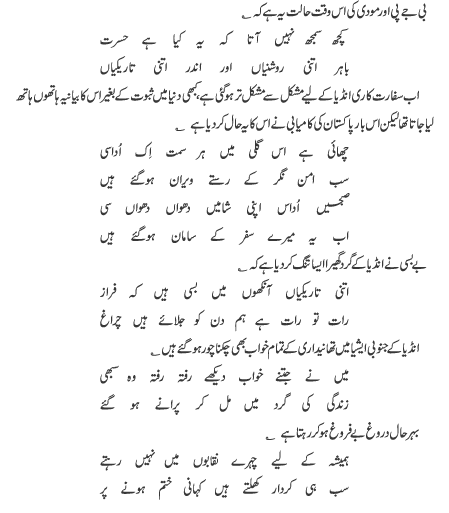 بی جے پی اور مودی کی اس وقت حالت یہ ہے کہ ؎
کچھ سمجھ نہیں آتا کہ یہ کیا ہے حسرت
باہر اتنی روشنیاں اور اندر اتنی تاریکیاں
اب سفارت کاری انڈیا کے لیے مشکل سے مشکل تر ہو گئی ہے، کبھی دنیا میں ثبوت کے بغیر اس کا بیانیہ ہاتھوں ہاتھ
لیا جاتا تھا لیکن اس بار پاکستان کی کامیابی نے اس کا یہ حال کر دیا ہے ؎
چھائی ہے اس گلی میں ہر سمت اِک اُداسی
سب امن نگر کے رستے ویران ہوگئے ہیں
صبحیں اُداس اپنی شامیں دھواں دھواں سی
اب یہ میرے سفر کے سامان ہوگئے ہیں
بے بسی نے انڈیا کے گرد گھیرا ایسا تنگ کر دیا ہے کہ ؎
اتنی تاریکیاں آنکھوں میں بسی ہیں کہ فراز
رات تو رات ہے ہم دن کو جلائے ہیں چراغ
انڈیا کے جنوبی ایشیا میں تھانیداری کے تمام خواب بھی چکنا چور ہو گئے ہیں ؎
میں نے جتنے خواب دیکھے رفتہ رفتہ وہ سبھی
زندگی کی گرد میں مل کر پرانے ہو گئے
بہر حال دروغ بے فروغ ہو کر رہتا ہے ؎
ہمیشہ کے لیے چہرے نقابوں میں نہیں رہتے
سب ہی کردار کھلتے ہیں کہانی ختم ہونے پر